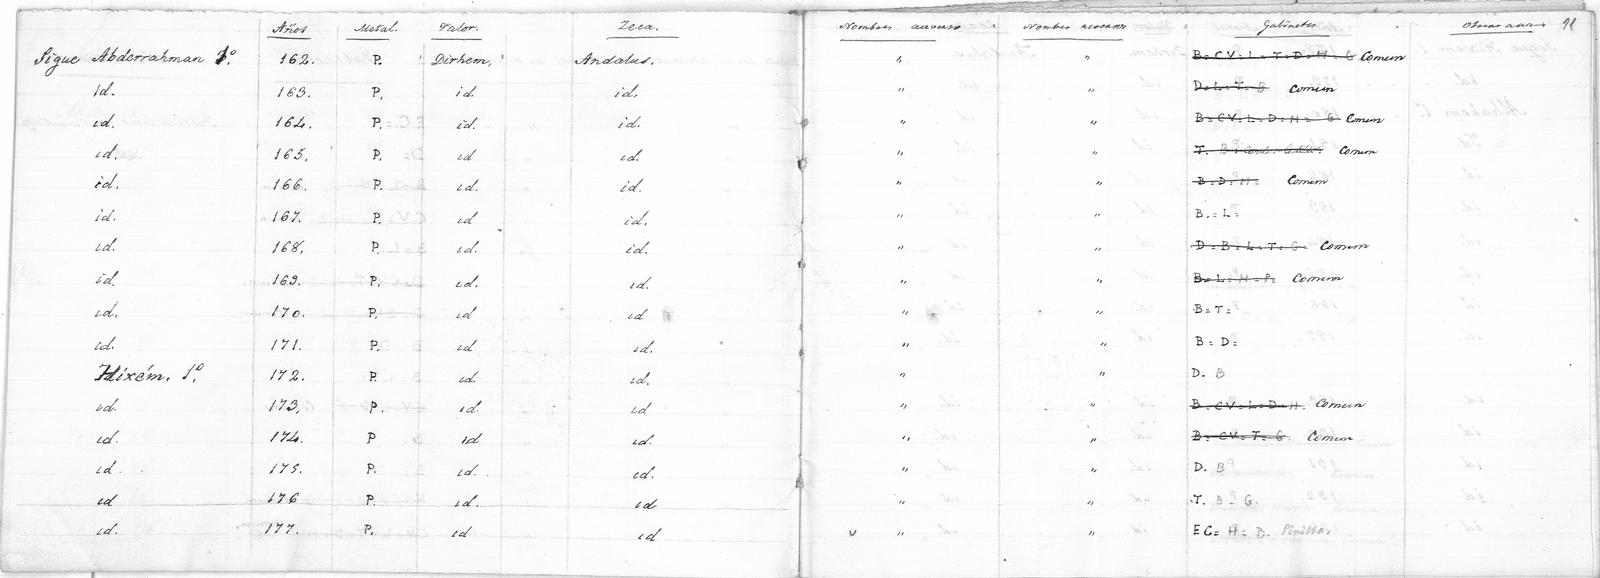 Años Metal. Valor. Zeca. Nombres anverso Nombres reverso Gabinetes
Sigue Abderrahman 1º. 162. P. Dirhem. Andalus. " " B=CV=L=T=D=H=G Comun
id. 163. P. id. id. " " D=L=T=B Comun
id. 164. P. id. id. " " B=CV=L=D=H=G Comun
id. 165. P. id id. " " T. B= Comun
id. 166. P. id. id. " " B=D=H= Comun
id. 167. P. id id. " " B.=L=
id. 168. P. id. id. " " D=B=L=T=G= Comun
id. 169. P. id. id. " " B=L=H=P. Comun
id. 170. P. id id " " B=T=
id. 171. P. id id. " " B=D=
Hixém. 1º. 172. P. id. id. " " D. B
id. 173. P. id. id " " B=CV=L=D=H. Comun
id. 174. P id id. " " B=CV=T=G. Comun
id. 175. P. id. id. " " D. B
id 176 P. id. id " " T. B=G.
id. 177. P. id id v " " EC= H= B. Pinillos